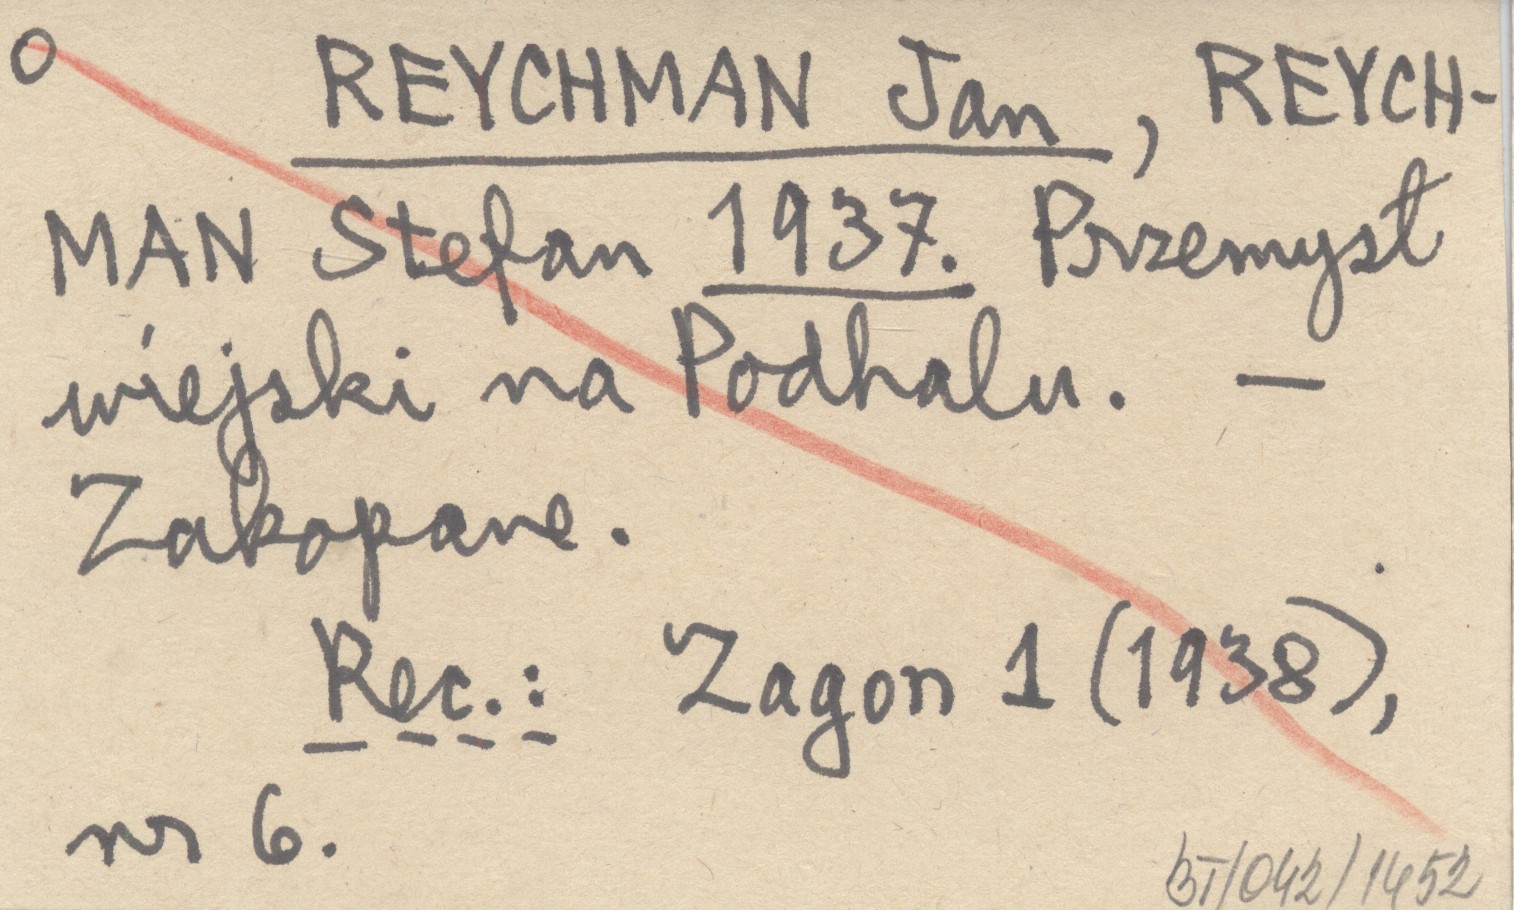 O REYCHMAN Jan, REYCH-
MAN Stefan 1937. Przemysł
wiejski na Podhalu. —
Zakopane.
Rec.: Zagon 1 (1938),
nr 6.
BI/042/1452